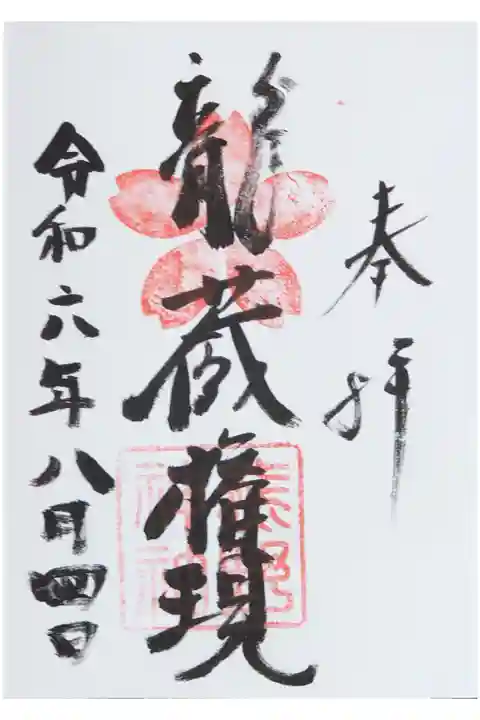 奉拝
龍蔵権現
令和六年八月四日